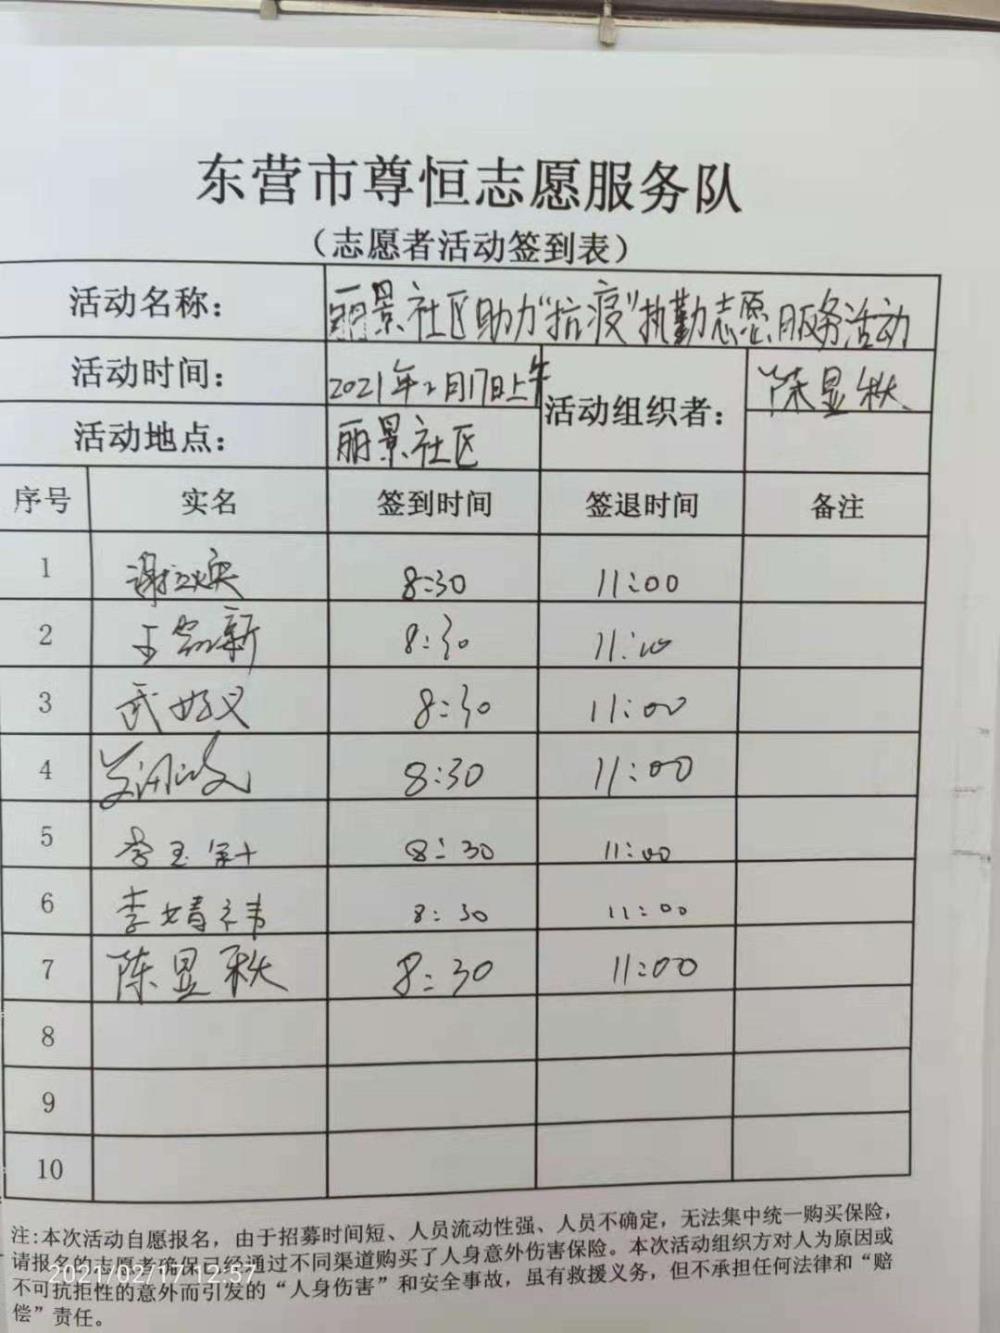 东营市尊恒志愿服务队
（志愿者活动签到表）
活动名称： 丽景社区助力“抗疫”执勤志愿服务活动
活动时间： 2021年2月17日上午 活动组织者： 陈显秋
活动地点： 丽景社区
序号 实名 签到时间 签退时间 备注
1 8:30 11:00
2 8:30 11:00
3 8:30 11:00
4 8:30 11:00
5 8:30 11:00
6 李婧祎 8:30 11:00
7 陈显秋 8:30 11:00
8
9
10
注:本次活动自愿报名，由于招募时间短、人员流动性强、人员不确定，无法集中统一购买保险，
请报名的志愿者确保已经通过不同渠道购买了人身意外伤害保险。本次活动组织方对人为原因或
不可抗拒性的意外而引发的“人身伤害”和安全事故，虽有救援义务，但不承担任何法律和“赔
偿”责任。
2021/02/17 12:57